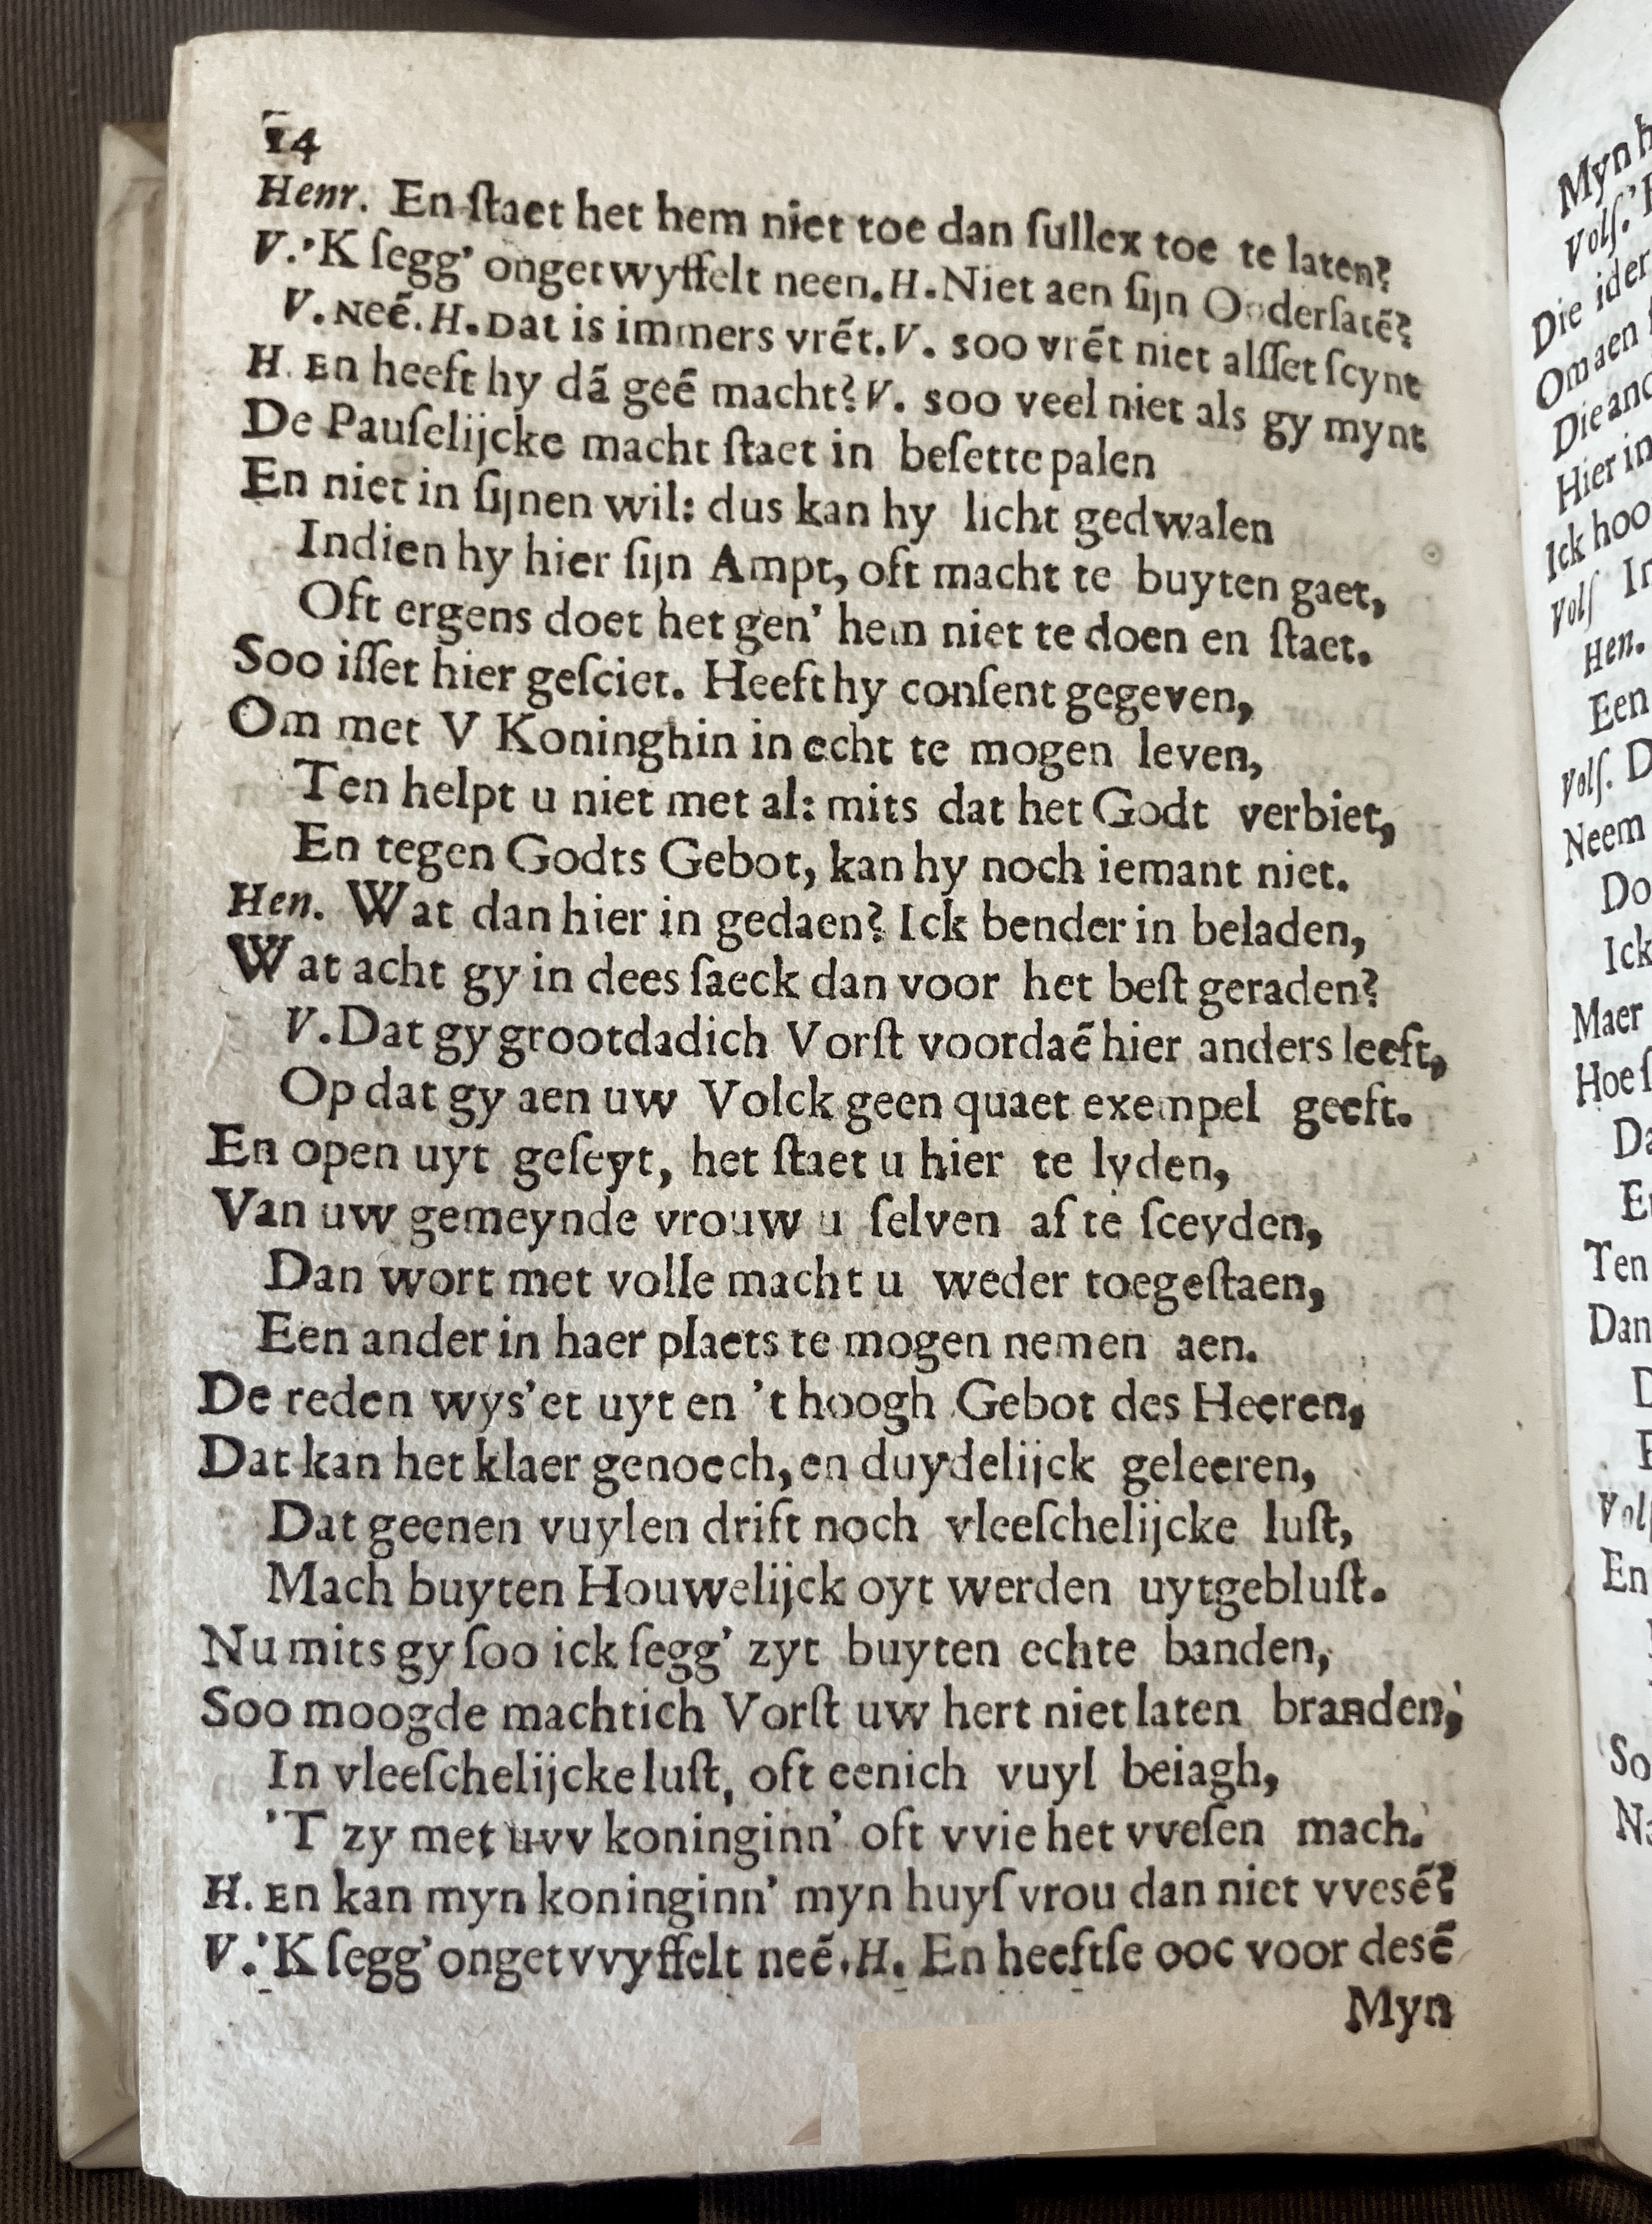 14
Henr. En ſtaet het hem niet toe dan ſullex toe te laten?
V.'K ſegg' ongetwyffelt neen.H.Niet aen ſijn Onderſatẽ?
V. Neẽ.H.Dat is immers vrẽt.V. soo vrẽt niet alſſet ſcynt
H. En heeft hy dã geẽ macht?V. soo veel niet als gy mynt
De Pauſelijcke macht ſtaet in beſette palen
En niet in ſijnen wil: dus kan hy licht gedwalen
Indien hy hier ſijn Ampt, oft macht te buyten gaet,
Oft ergens doet het gen' hem niet te doen en ſtaet.
Soo iſſet hier geſciet. Heeft hy conſent gegeven,
Om met V Koninghin in echt te mogen leven,
Ten helpt u niet met al: mits dat het Godt verbiet,
En tegen Godts Gebot, kan hy noch iemant niet.
Hen. Wat dan hier in gedaen? Ick bender in beladen,
Wat acht gy in dees ſaeck dan voor het beſt geraden?
V.Dat gy grootdadich Vorſt voordaẽ hier anders leeft,
Op dat gy aen uw Volck geen quaet exempel geeft.
En open uyt geſeyt, het ſtaet u hier te lyden,
Van uw gemeynde vrouw u ſelven af te ſceyden,
Dan wort met volle macht u weder toegeſtaen,
Een ander in haer plaets te mogen nemen aen.
De reden wys'et uyt en 't hoogh Gebot des Heeren,
Dat kan het klaer genoech, en duydelijck geleeren,
Dat geenen vuylen drift noch vleeſchelijcke luſt,
Mach buyten Houwelijck oyt werden uytgebluſt.
Nu mits gy ſoo ick ſegg' zyt buyten echte banden,
Soo moogde machtich Vorſt uw hert niet laten branden,
In vleeſchelijcke luſt, oft eenich vuyl beiagh,
'T zy met uvv koninginn' oft vvie het vveſen mach.
H. En kan myn koninginn' myn huyſ vrou dan niet vvesẽ?
V.'K ſegg' ongetvvyffelt neẽ.H. En heeftſe ooc voor desẽ
Myn
Volſ.
Die ider
Om aen
Die and
Hier in
Ick hoo
Volſ
Hen.
Een
Volſ. D
Neem
Do
Ick
Maer
Hoe
Da
Ten
Dan
En
So